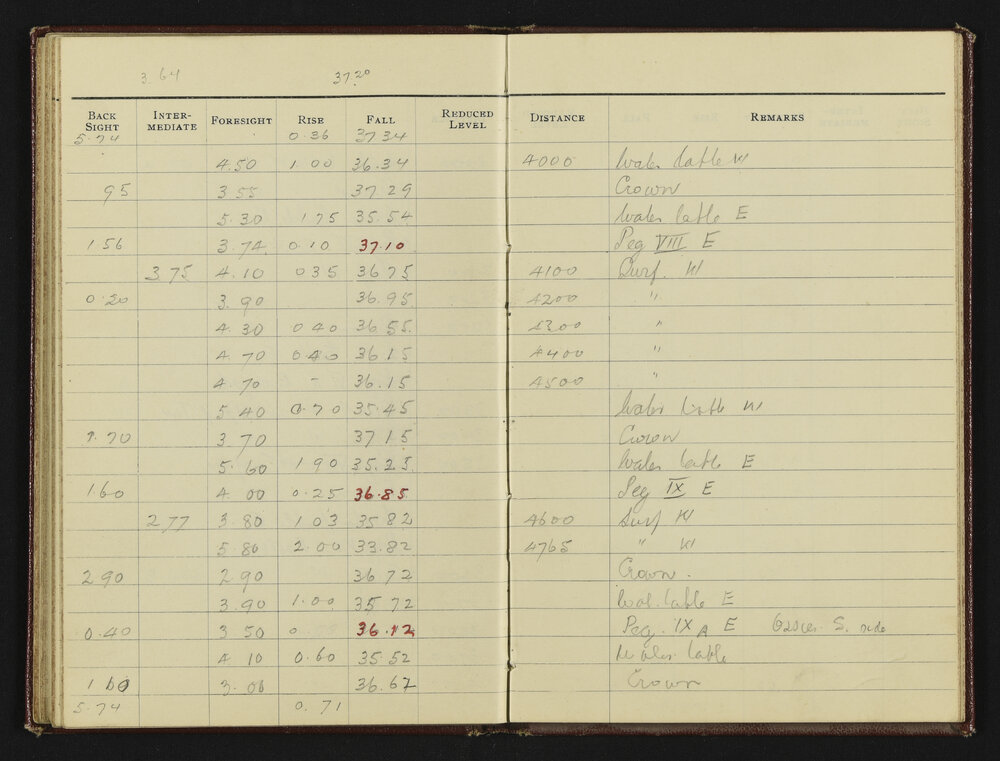 3.64 37.20
BACK SIGHT INTER-MEDIATE FORESIGHT RISE FALL REDUCED LEVEL DISTANCE REMARKS
5.74 0.36 37.34
4.50 1.00 36.34 4000 Water table W
95 3.55 37 29 Crown
5.30 1 75 35.54 Water table E
1 56 3.74 0.10 37.10 Peg VIII E
3 75 4.10 0 35 36 75 4100 Surf. W
0.20 3.90 36.95 4200 "
4.30 0 40 36 55 4300 "
4.70 0 40 36 15 4400 "
4.70 - 36.15 4500 "
5.40 0.70 35.45 Water table W
3.70 37 15 Crown
5.60 1 90 35.25 Water table E
1 60 4.00 0.25 36.85 Peg IX E
2 77 3.80 1 03 35 82 4600 Surf W
5.80 2.00 33.82 4765 " W
2 90 2.90 36 72 Crown.
3.90 1.00 35 72 Wat. table E
0.40 3 50 0 36.12 Peg. IX A E S. side
4 10 0.60 35.52 Water table
1 60 36.67 Crown
5.74 0.71